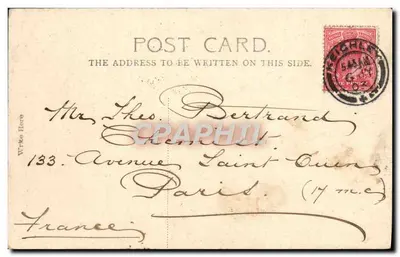 POST CARD.
THE ADDRESS TO BE WRITTEN ON THIS SIDE.
KEIGHLEY
Write Here
Mr Theo. Bertrand
Chemist
CPARAMA
133. Avenue Saint Ouen
Paris (17 me)
France